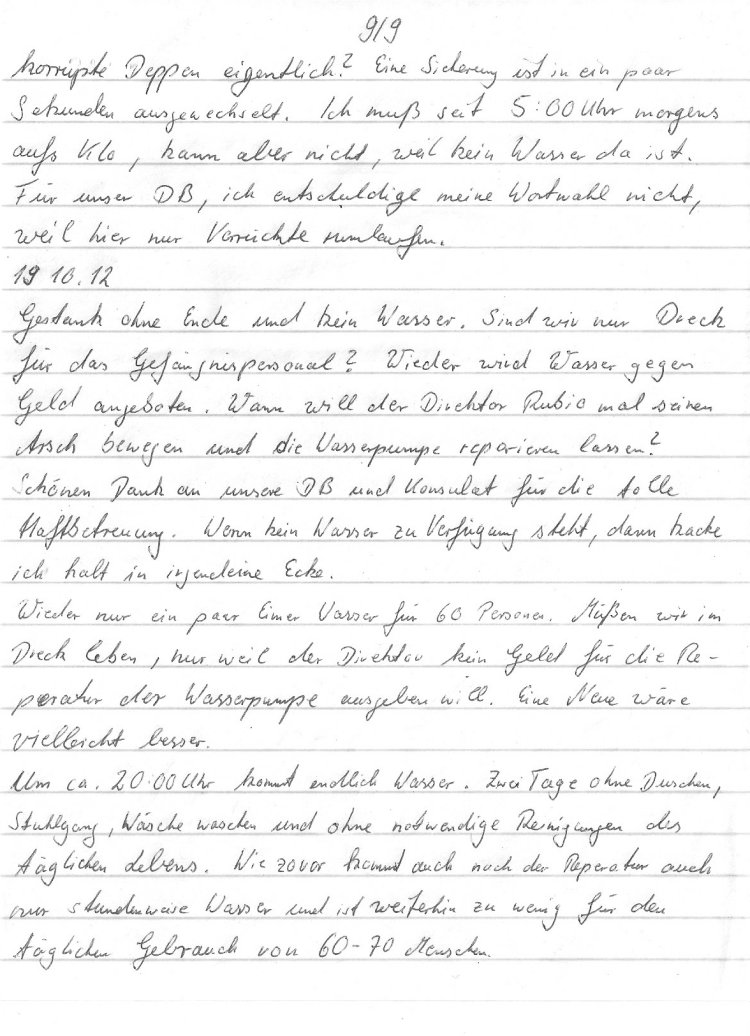 9/9
korrupte Deppen eigentlich? Eine Sicherung ist in ein paar
Sekunden ausgewechselt. Ich muß seit 5:00 Uhr morgens
aufs Klo, kann aber nicht, weil kein Wasser da ist.
Für unser DB, ich entschuldige meine Wortwahl nicht,
weil hier nur Verrückte rumlaufen.
19 10.12
Gestank ohne Ende und kein Wasser. Sind wir nur Dreck
für das Gefängnispersonal? Wieder wird Wasser gegen
Geld angeboten. Wann will der Direktor Rubio mal seinen
Arsch bewegen und die Wasserpumpe reparieren lassen?
Schönen Dank an unsere DB und Konsulat für die tolle
Haftbetreuung. Wenn kein Wasser zu Verfügung steht, dann kacke
ich halt in irgendeine Ecke.
Wieder nur ein paar Eimer Wasser für 60 Personen. Müßen wir im
Dreck leben, nur weil der Direktor kein Geld für die Re-
peratur der Wasserpumpe ausgeben will. Eine Neue wäre
vielleicht besser.
Um ca. 20:00 Uhr kommt endlich Wasser. Zwei Tage ohne Duschen,
Stuhlgang, Wäsche waschen und ohne notwendige Reinigungen des
täglichen Lebens. Wie zovor kommt auch nach der Reperatur auch
nur stundenweise Wasser und ist weiterhin zu wenig für den
täglichen Gebrauch von 60-70 Menschen.